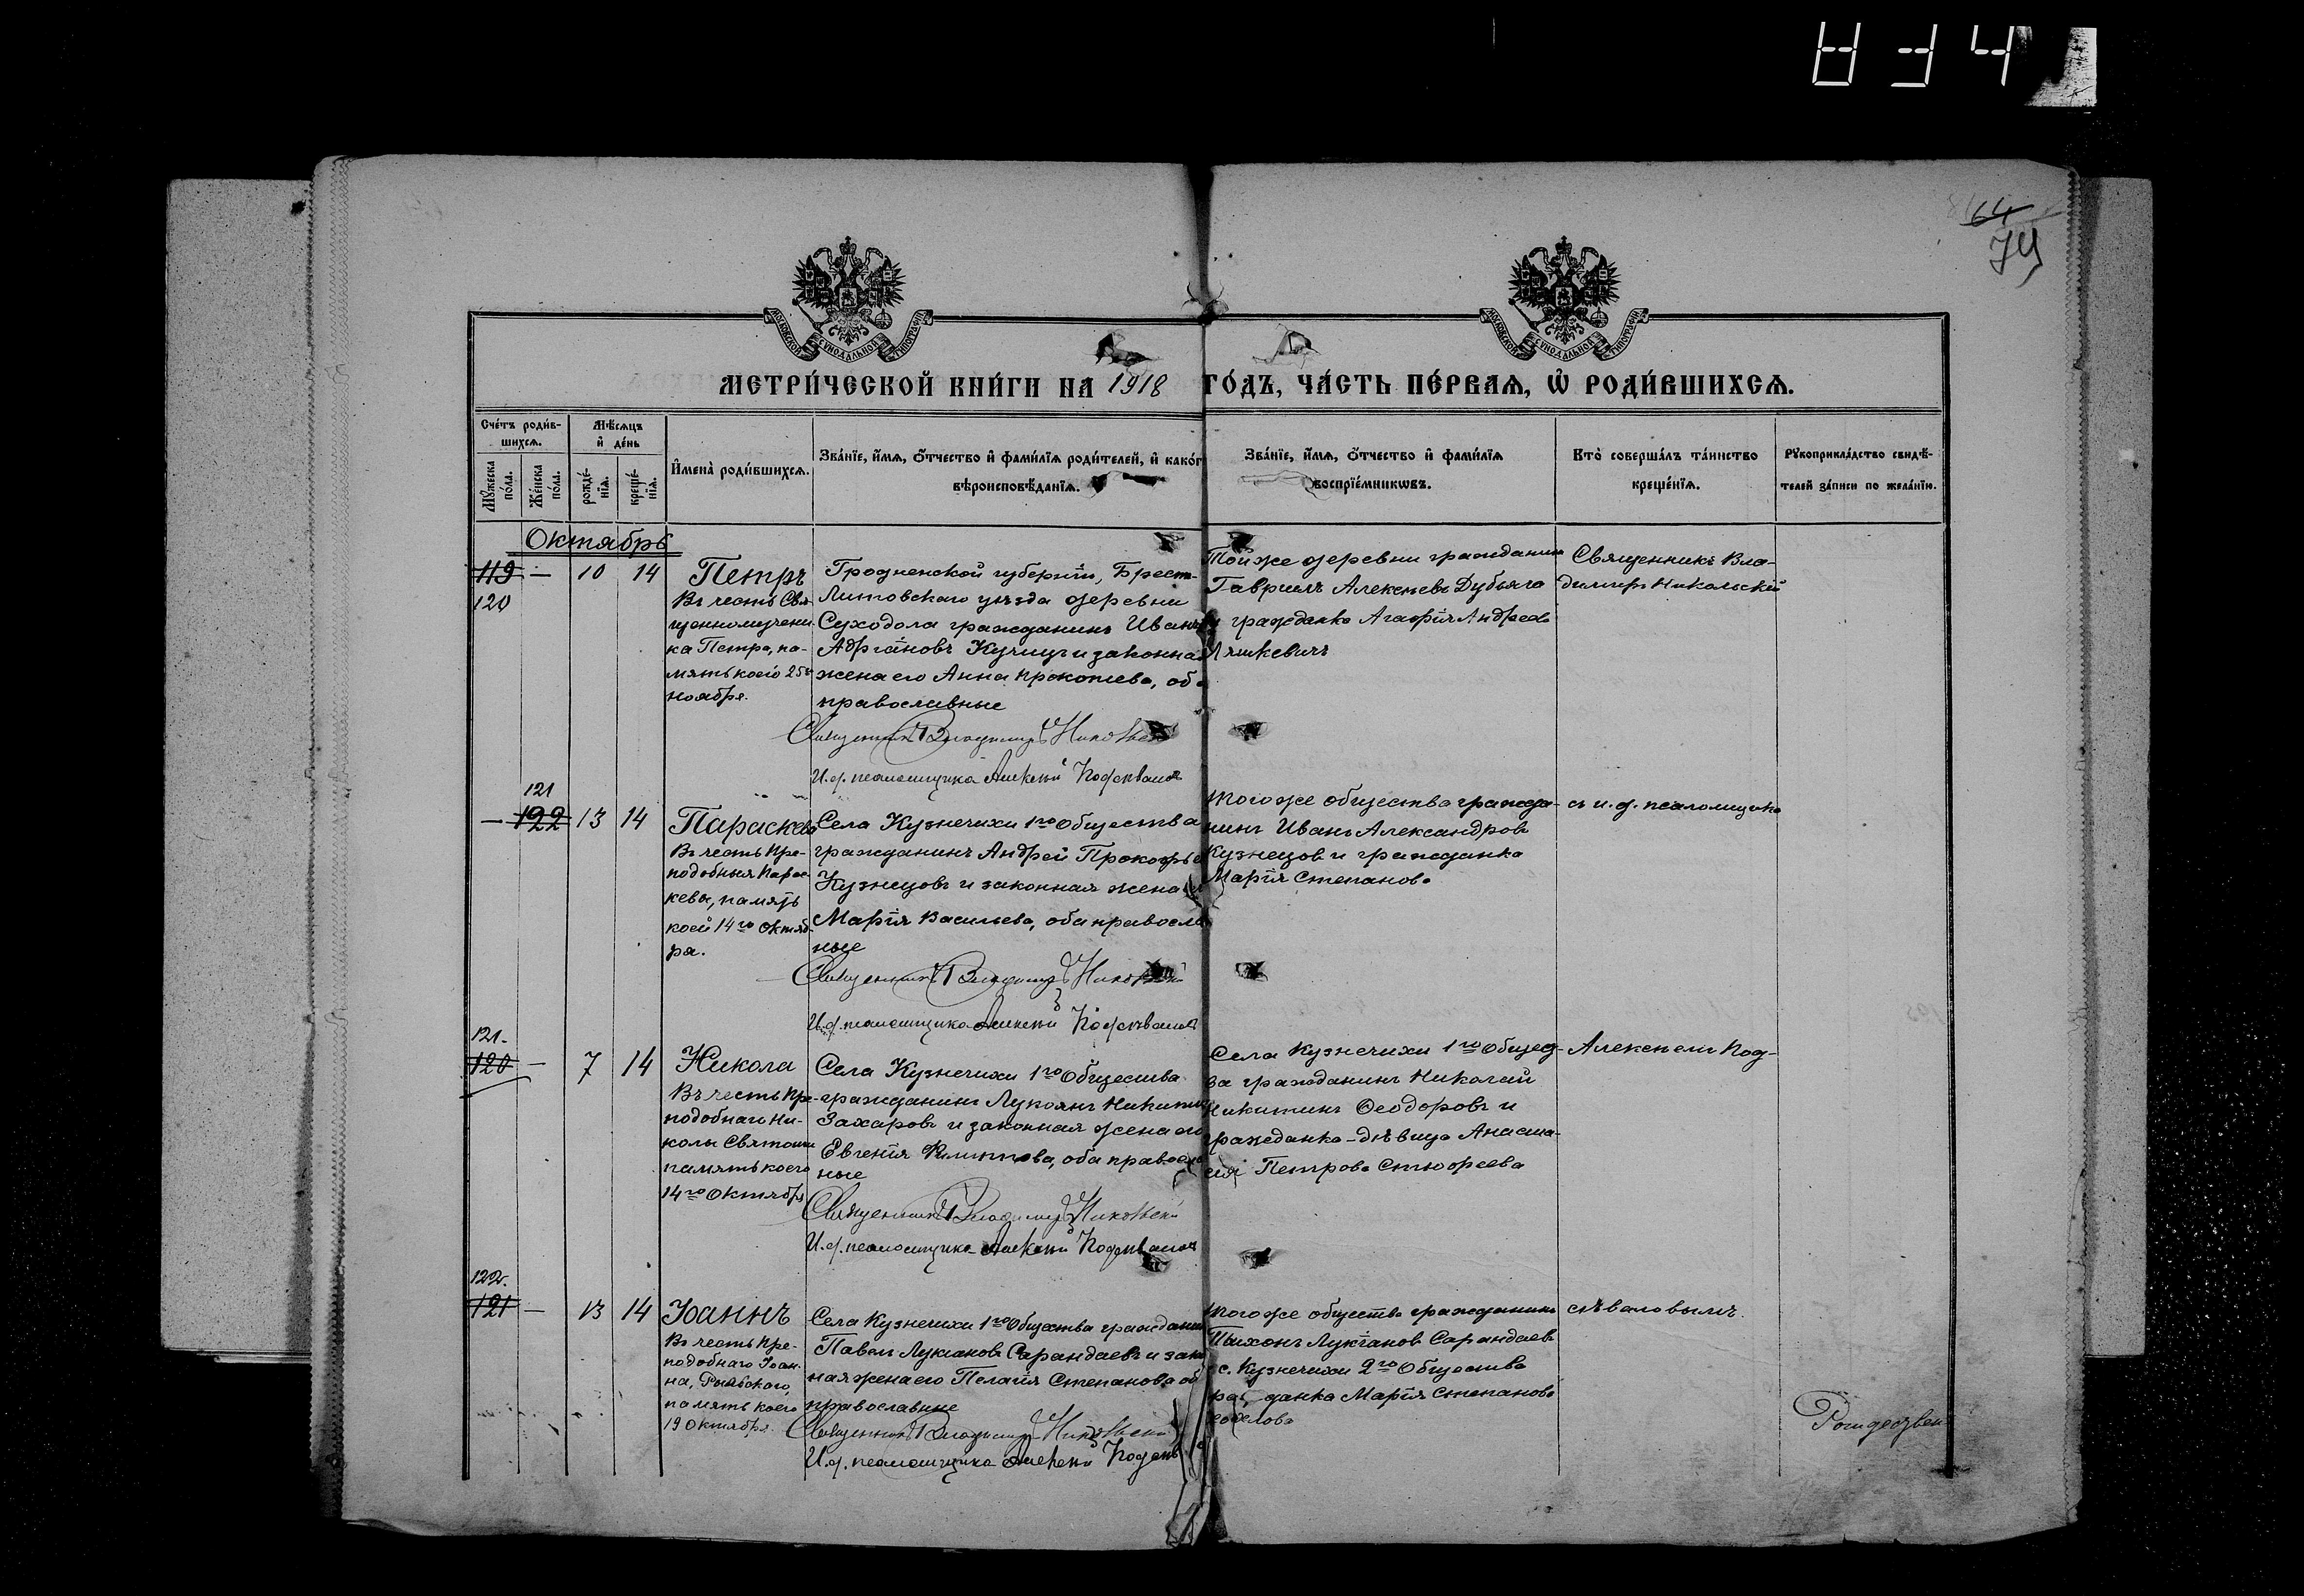 834
64
74
МОСКОВСКОЙ СѴНОДАЛЬНОЙ ТИПОГРАФІИ
МОСКОВСКОЙ СѴНОДАЛЬНОЙ ТИПОГРАФІИ
МЕТРИ́ЧЕСКОЙ КНИ́ГИ НА 1918 ГО́ДЪ, ЧА́СТЬ ПЕ́РВАѦ, Ѡ҆ РОДИ́ВШИХСѦ.
Сче́тъ роди́в-
шихсѧ.
Мꙋ́жеска по́ла.
Же́нска по́ла.
Мѣ́сѧцъ
и҆ де́нь
рожде́-
нїѧ.
креще́-
нїѧ.
И҆мена̀ роди́вшихсѧ.
Зва́нїе, и҆́мѧ, ѻ҆́тчество и҆ фами́лїѧ роди́телей, и҆ како́г
вѣроисповѣ́данїѧ.
Зва́нїе, и҆́мѧ, ѻ҆́тчество и҆ фами́лїѧ
воспрїе́мникѡвъ.
Кто̀ соверша́лъ та́инство
креще́нїѧ.
Рꙋкоприкла́дство свидѣ́-
телей за́писи по жела́нїю.
Октябрь
119 — 10 14
120
Петръ
Въ честь Свя-
щенномучени-
ка Петра, па-
мять коего 25го
ноября.
Гродненской губерніи, Брест-
Литовскаго уѣзда деревни
Суходола гражданинъ Иванъ
Адріановъ Кучицъ и законная
жена его Анна Прокопьева, оба
православные
Священникъ Владимиръ Никольскій
И.д. псаломщика Алексѣй Подсѣваловъ
Той же деревни гражданинъ
Гавріилъ Алексѣевъ Дубяга
и гражданка Агафія Андреева
Священникъ Вла-
димиръ Никольскій
121
— 122 13 14
Параскева
Въ честь Пре-
подобныя Парас-
кевы, память
коей 14го Октяб-
ря.
Села Кузнечихи 1го Общества
гражданинъ Андрей Прокофьев
Кузнецовъ и законная жена
Марія Васильева, оба православ
ные
Священникъ Владимиръ Никольскій
И.д. псаломщика Алексѣй Подсѣваловъ
Того же общества гражда-
нинъ Иванъ Александровъ
Кузнецовъ и гражданка
Марія Степанова
съ и.д. псаломщика
121.
120 — 7 14
Никола
Въ честь Пре-
подобнаго Ни-
колы Святоши
память коего
14го Октября
Села Кузнечихи 1го Общества
гражданинъ Лукіянъ Никитинъ
Захаровъ и законная жена его
Евгенія Филиппова, оба правосла
ные
Священникъ Владимиръ Никольскій
И.д. псаломщика Алексѣй Подсѣваловъ
Села Кузнечихи 1го Общест-
ва гражданинъ Николай
Никитинъ Ѳеодоровъ и
гражданка-дѣвица Анаста-
сія Петрова
Алексѣемъ Под-
122.
121 — 13 14
Іоаннъ
Въ честь Пре-
подобнаго Іоан-
на, Рыльскаго,
память коего
19 Октября.
Села Кузнечихи 1го Общества гражданинъ
Павелъ Лукіановъ Сарандаевъ и закон
ная жена его Пелагія Степанова об
православные
Священникъ Владимиръ Никольскій
И.д. псаломщика Алексѣй Подсѣв
Того же общества гражданинъ
Тихонъ Лукіановъ Сарандаевъ
с. Кузнечихи 2го Общества
гражданка Марія Степанова
сѣваловымъ.